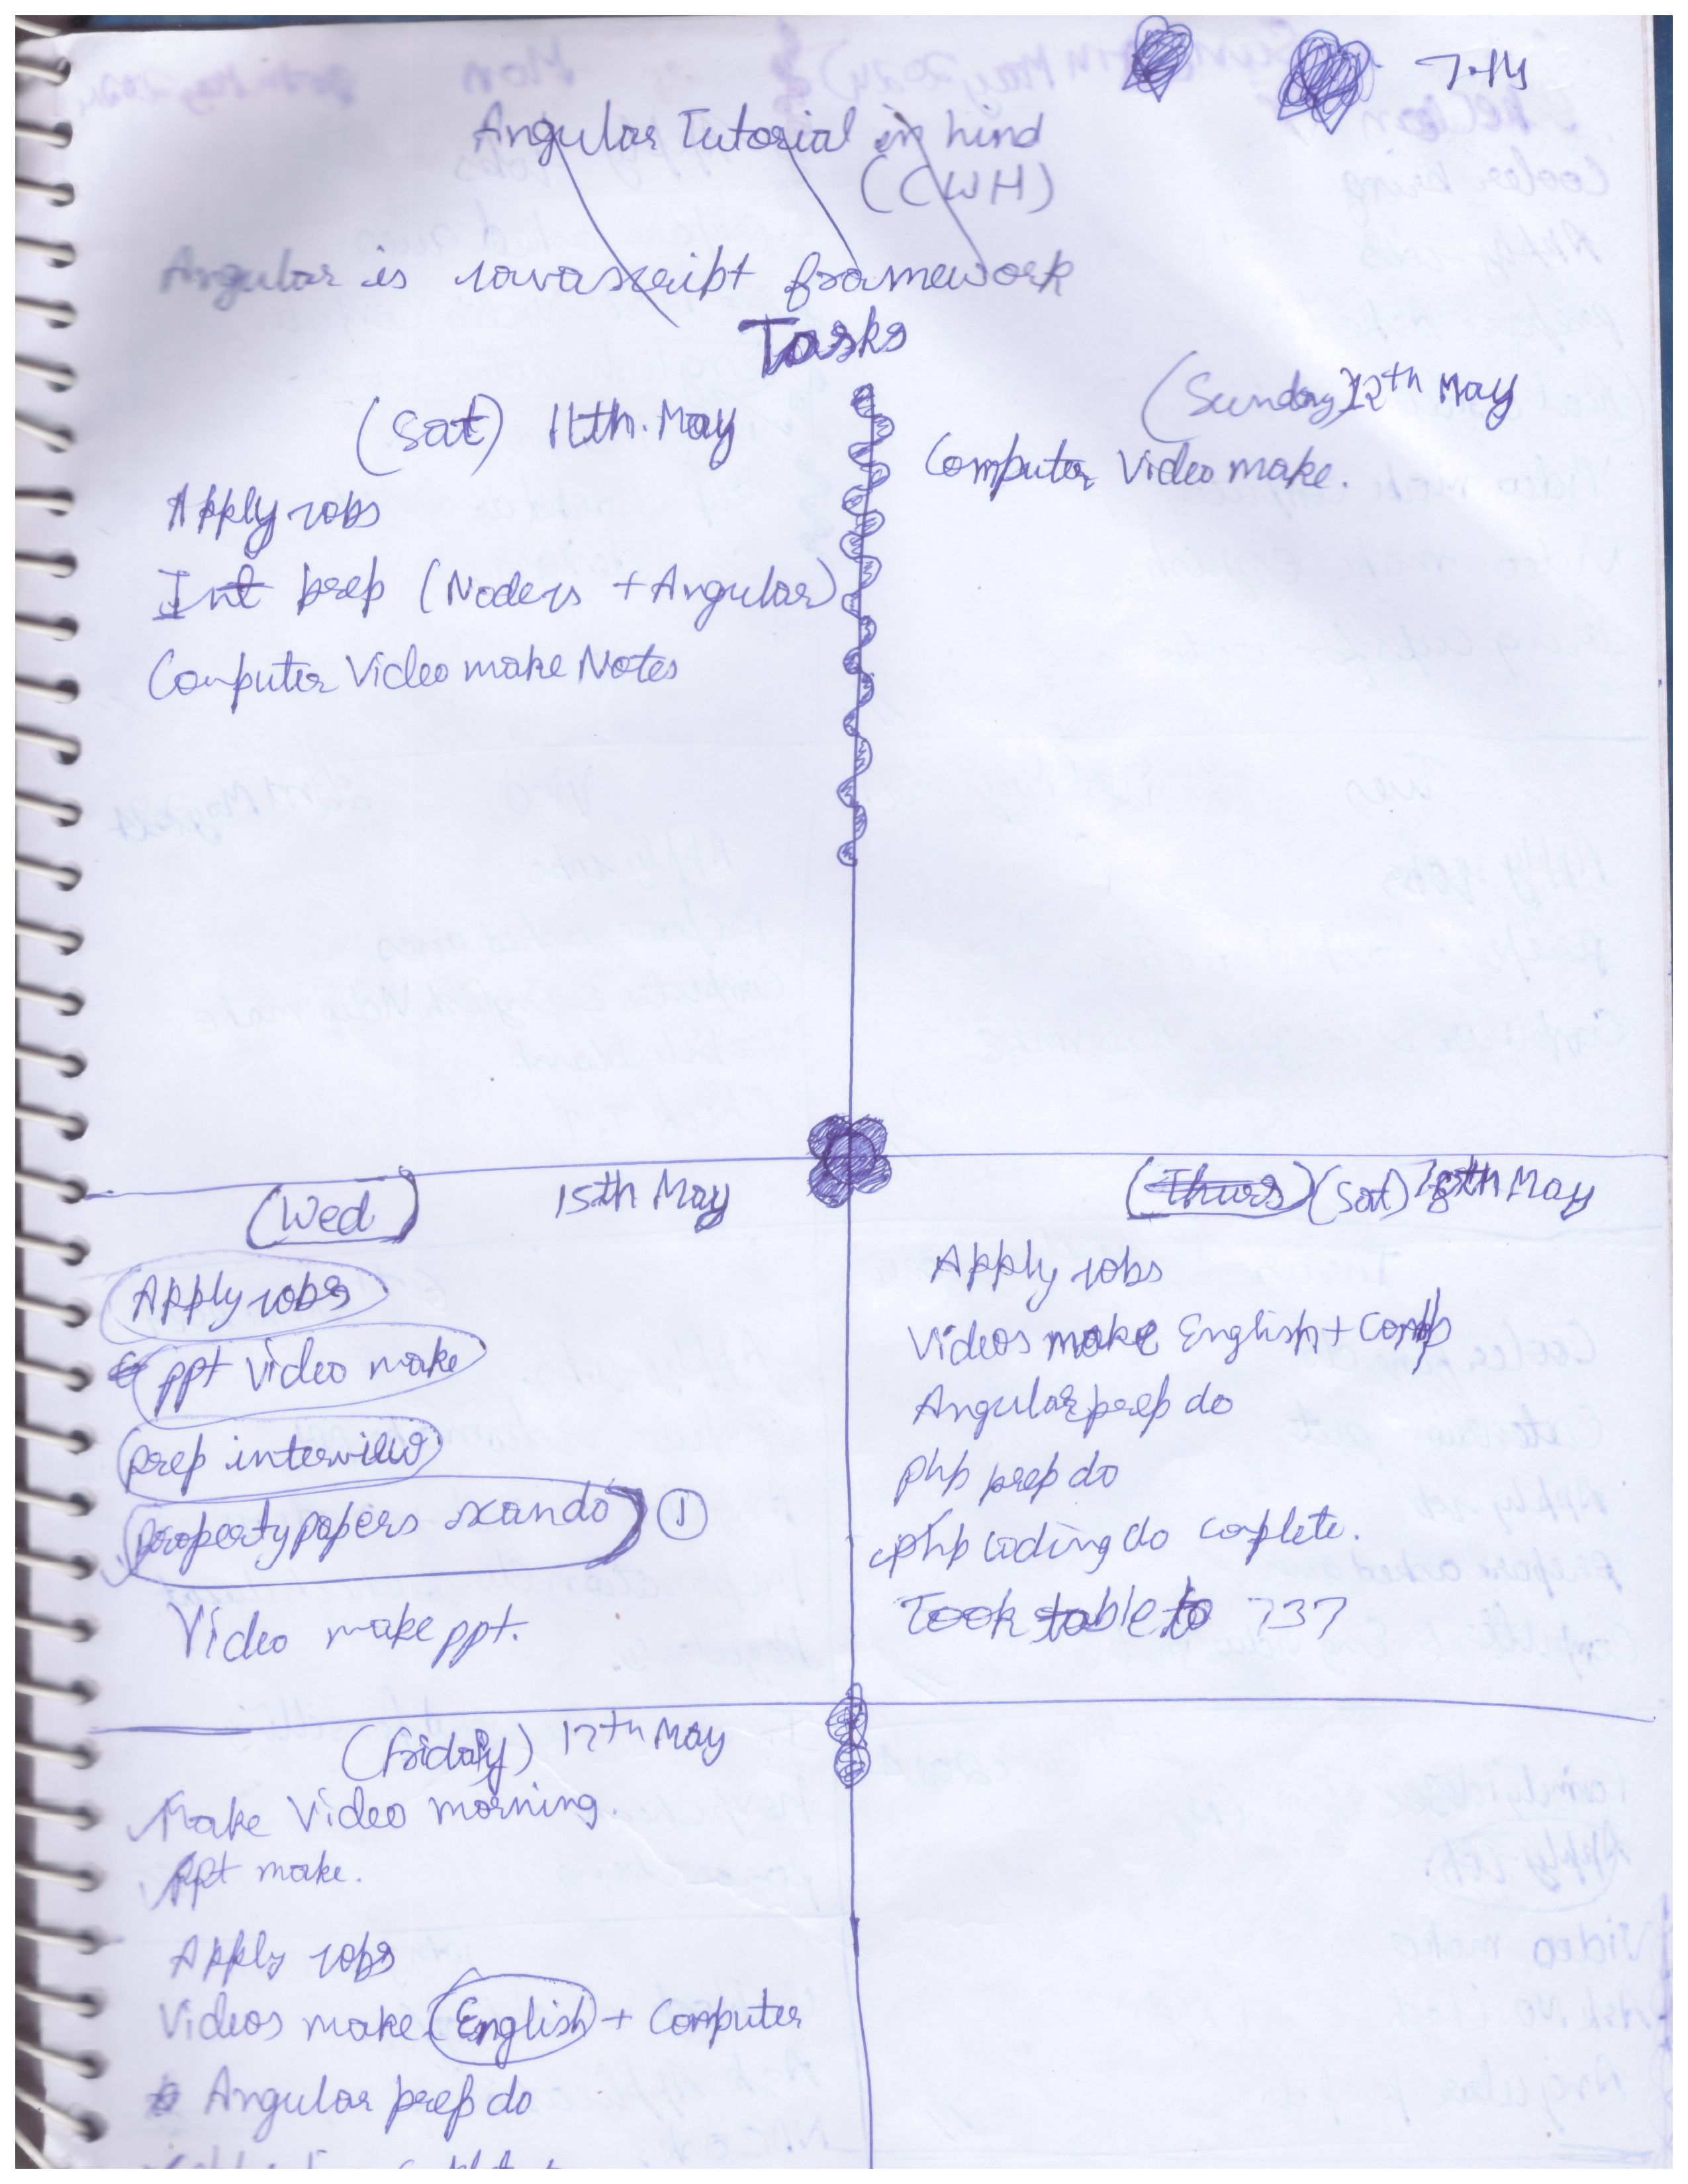 7.14
Angular Tutorial in hind
(CWH)
Angular is Javascript framework
Tasks
(Sat) 11th. May
Apply Jobs
Int prep (NodeJs + Angular)
Computer Video make Notes
(Sunday) 12th May
Computer Video make.
(Wed) 15th May
Apply Jobs
ppt video make
prep interview
property papers scan do ①
Video make ppt.
(Thurs) (Sat) 18th May
Apply Jobs
Videos make English + Comp
Angular prep do
php prep do
php coding do coplete.
Took table to 737
(friday) 17th May
Make Video morning.
ppt make.
Apply Jobs
Videos make English + Computer
Angular prep do